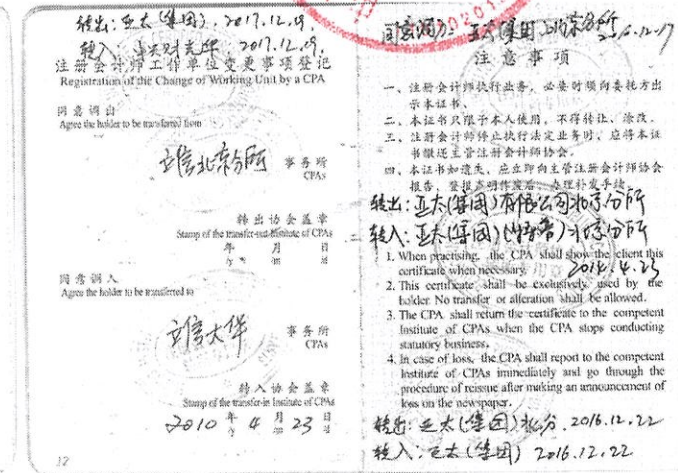 转出: 亚太(集团). 2017.12.19.
转入: 2017.12.19.
注册会计师工作单位变更事项登记
Registration of the Change of Working Unit by a CPA
同意调出
Agree the holder to be transferred from
立信北京分所 事务所
CPAs
转出协会盖章
Stamp of the transfer-out Institute of CPAs
年 月 日
同意调入
Agree the holder to be transferred to
立信大华 事务所
CPAs
转入协会盖章
Stamp of the transfer-in Institute of CPAs
2010 年 4 月 23 日
12
注意事项
一、注册会计师执行业务，必要时须向委托方出
示本证书。
二、本证书只限于本人使用，不得转让、涂改。
三、注册会计师停止执行法定业务时，应将本证
书缴还主管注册会计师协会。
四、本证书如遗失，应立即向主管注册会计师协会
报告，登报声明作废后，办理补发手续。
转出: 亚太(集团)有限公司北京分所
转入: 亚太(集团)(特普)北京分所
1. When practising, the CPA shall show the client this
certificate when necessary.
2014.4.23
2. This certificate shall be exclusively used by the
holder. No transfer or alteration shall be allowed.
3. The CPA shall return the certificate to the competent
Institute of CPAs when the CPA stops conducting
statutory business.
4. In case of loss, the CPA shall report to the competent
Institute of CPAs immediately and go through the
procedure of reissue after making an announcement of
loss on the newspaper.
转出: 亚太(集团)北分. 2016.12.22
转入: 亚太(集团) 2016.12.22